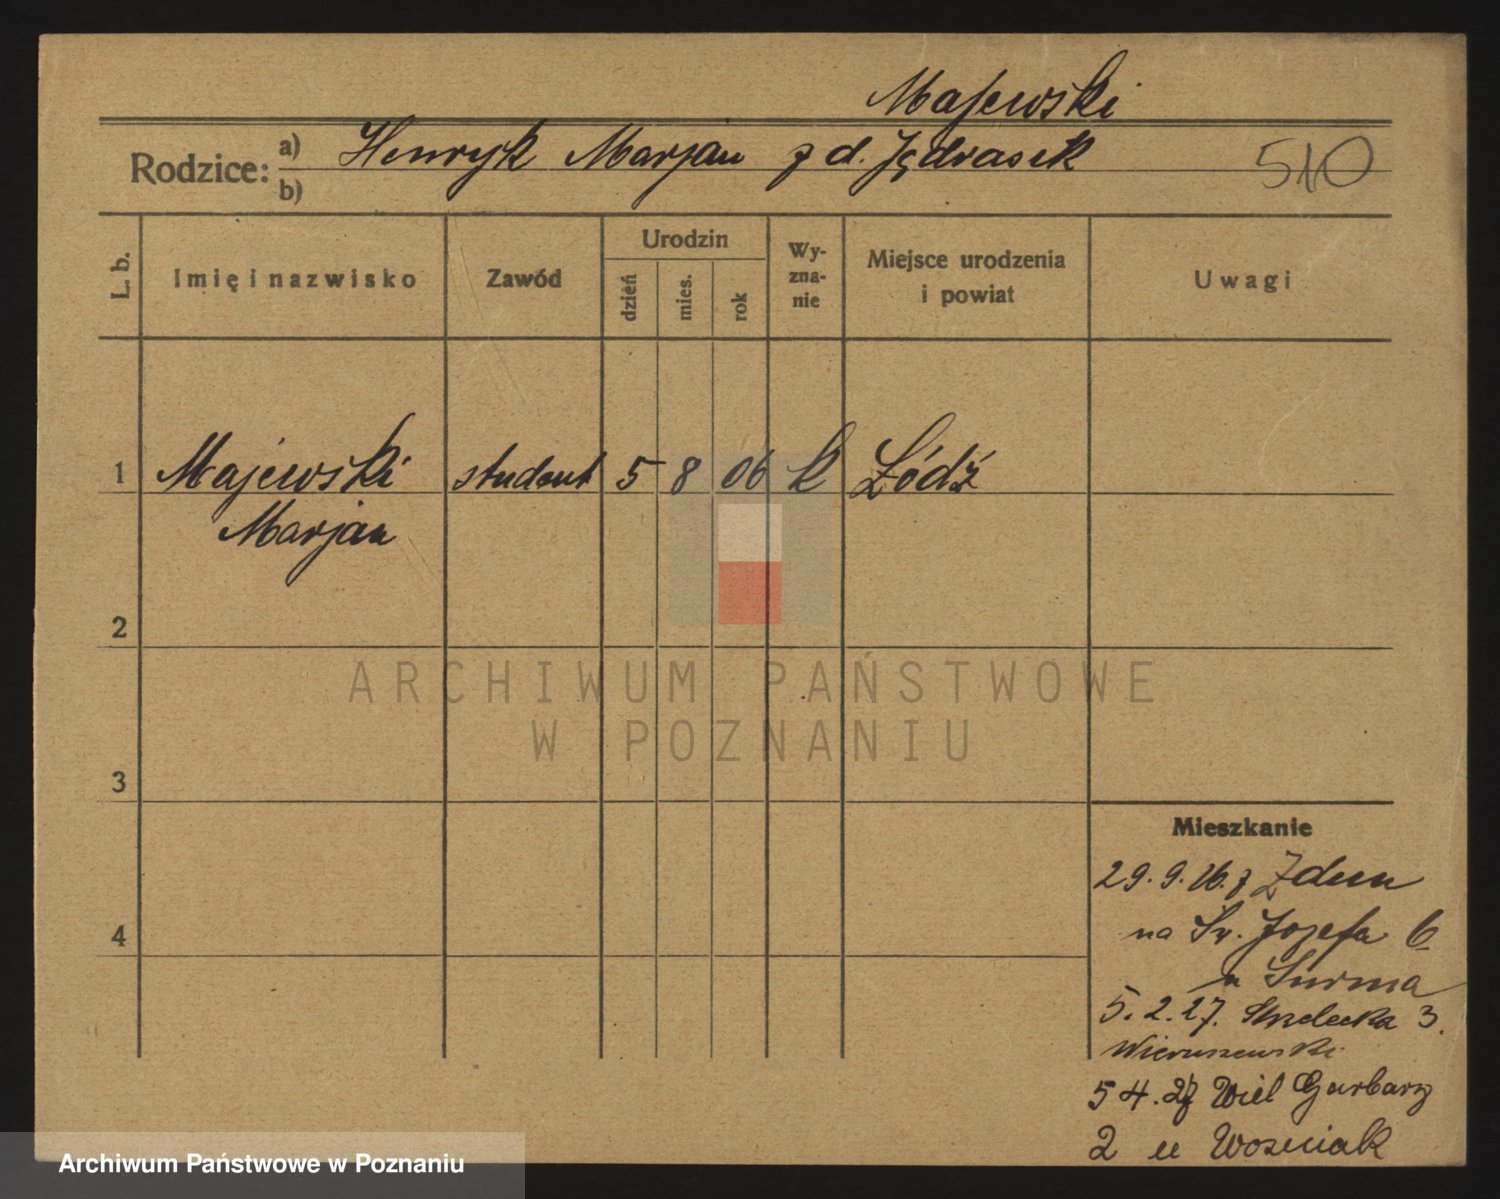 Majewski
Rodzice: a) Henryk Marjan z d. Jędrasek
b)
510
L. b.
Imię i nazwisko
Zawód
Urodzin
dzień
mies.
rok
Wy-
zna-
nie
Miejsce urodzenia
i powiat
Uwagi
1 Majewski student 5 8 06 k Łódź
Marjan
2
3
4
Mieszkanie
29.9.26. z Zdun
na Św. Jozefa 6
u Surma
5.2.27. Strzelecka 3.
Wieruszewski
5 4. 27 Wiel Garbary
2 u Wozniak
ARCHIWUM PAŃSTWOWE
W POZNANIU
Archiwum Państwowe w Poznaniu